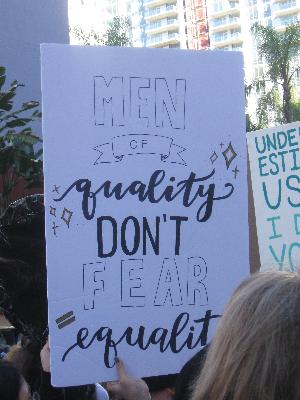 MEN
OF
quality
DON'T
FEAR
= equalit
UNDE
ESTI
US
I D
YO